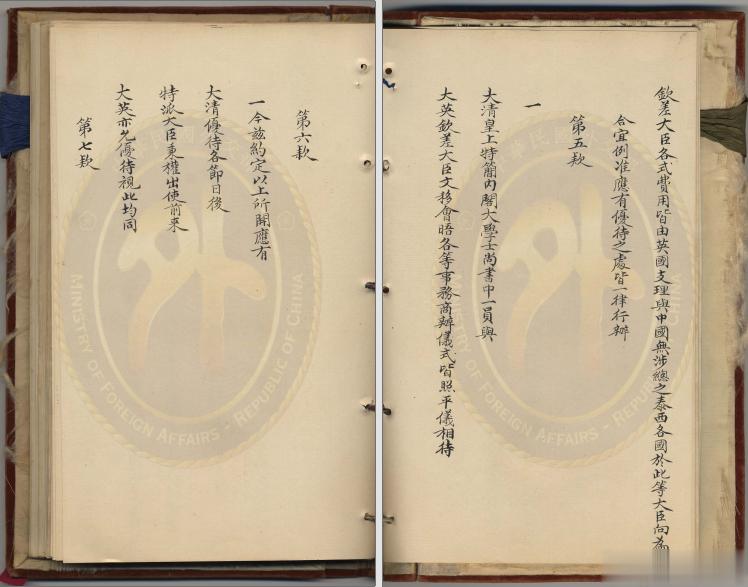 欽差大臣各式費用皆由英國支理與中國無涉總之泰西各國於此等大臣向為
合宜例准應有優待之處皆一律行辦
第五款
一
大清皇上特簡內閣大學士尚書中一員與
大英欽差大臣文移會晤各等事務商辦儀式皆照平儀相待
第六款
一今茲約定以上所開應有
大清優待各節日後
特派大臣秉權出使前來
大英亦允優待視此均同
第七款
MINISTRY OF FOREIGN AFFAIRS - REPUBLIC OF CHINA
MINISTRY OF FOREIGN AFFAIRS - REPUBLIC OF CHINA